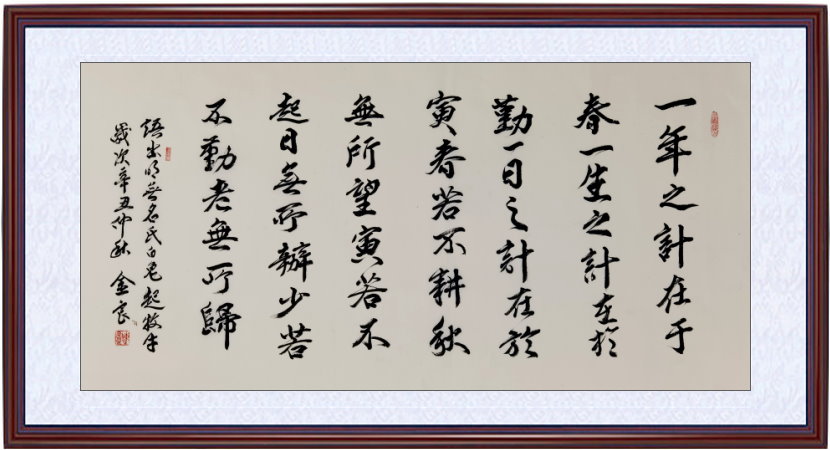 一年之計在于
春一生之計在於
勤一日之計在於
寅春若不耕秋
無所望寅若不
起日無所辦少若
不勤老無所歸
語出明無名氏白兔起牧牛
歲次辛丑仲秋 金良